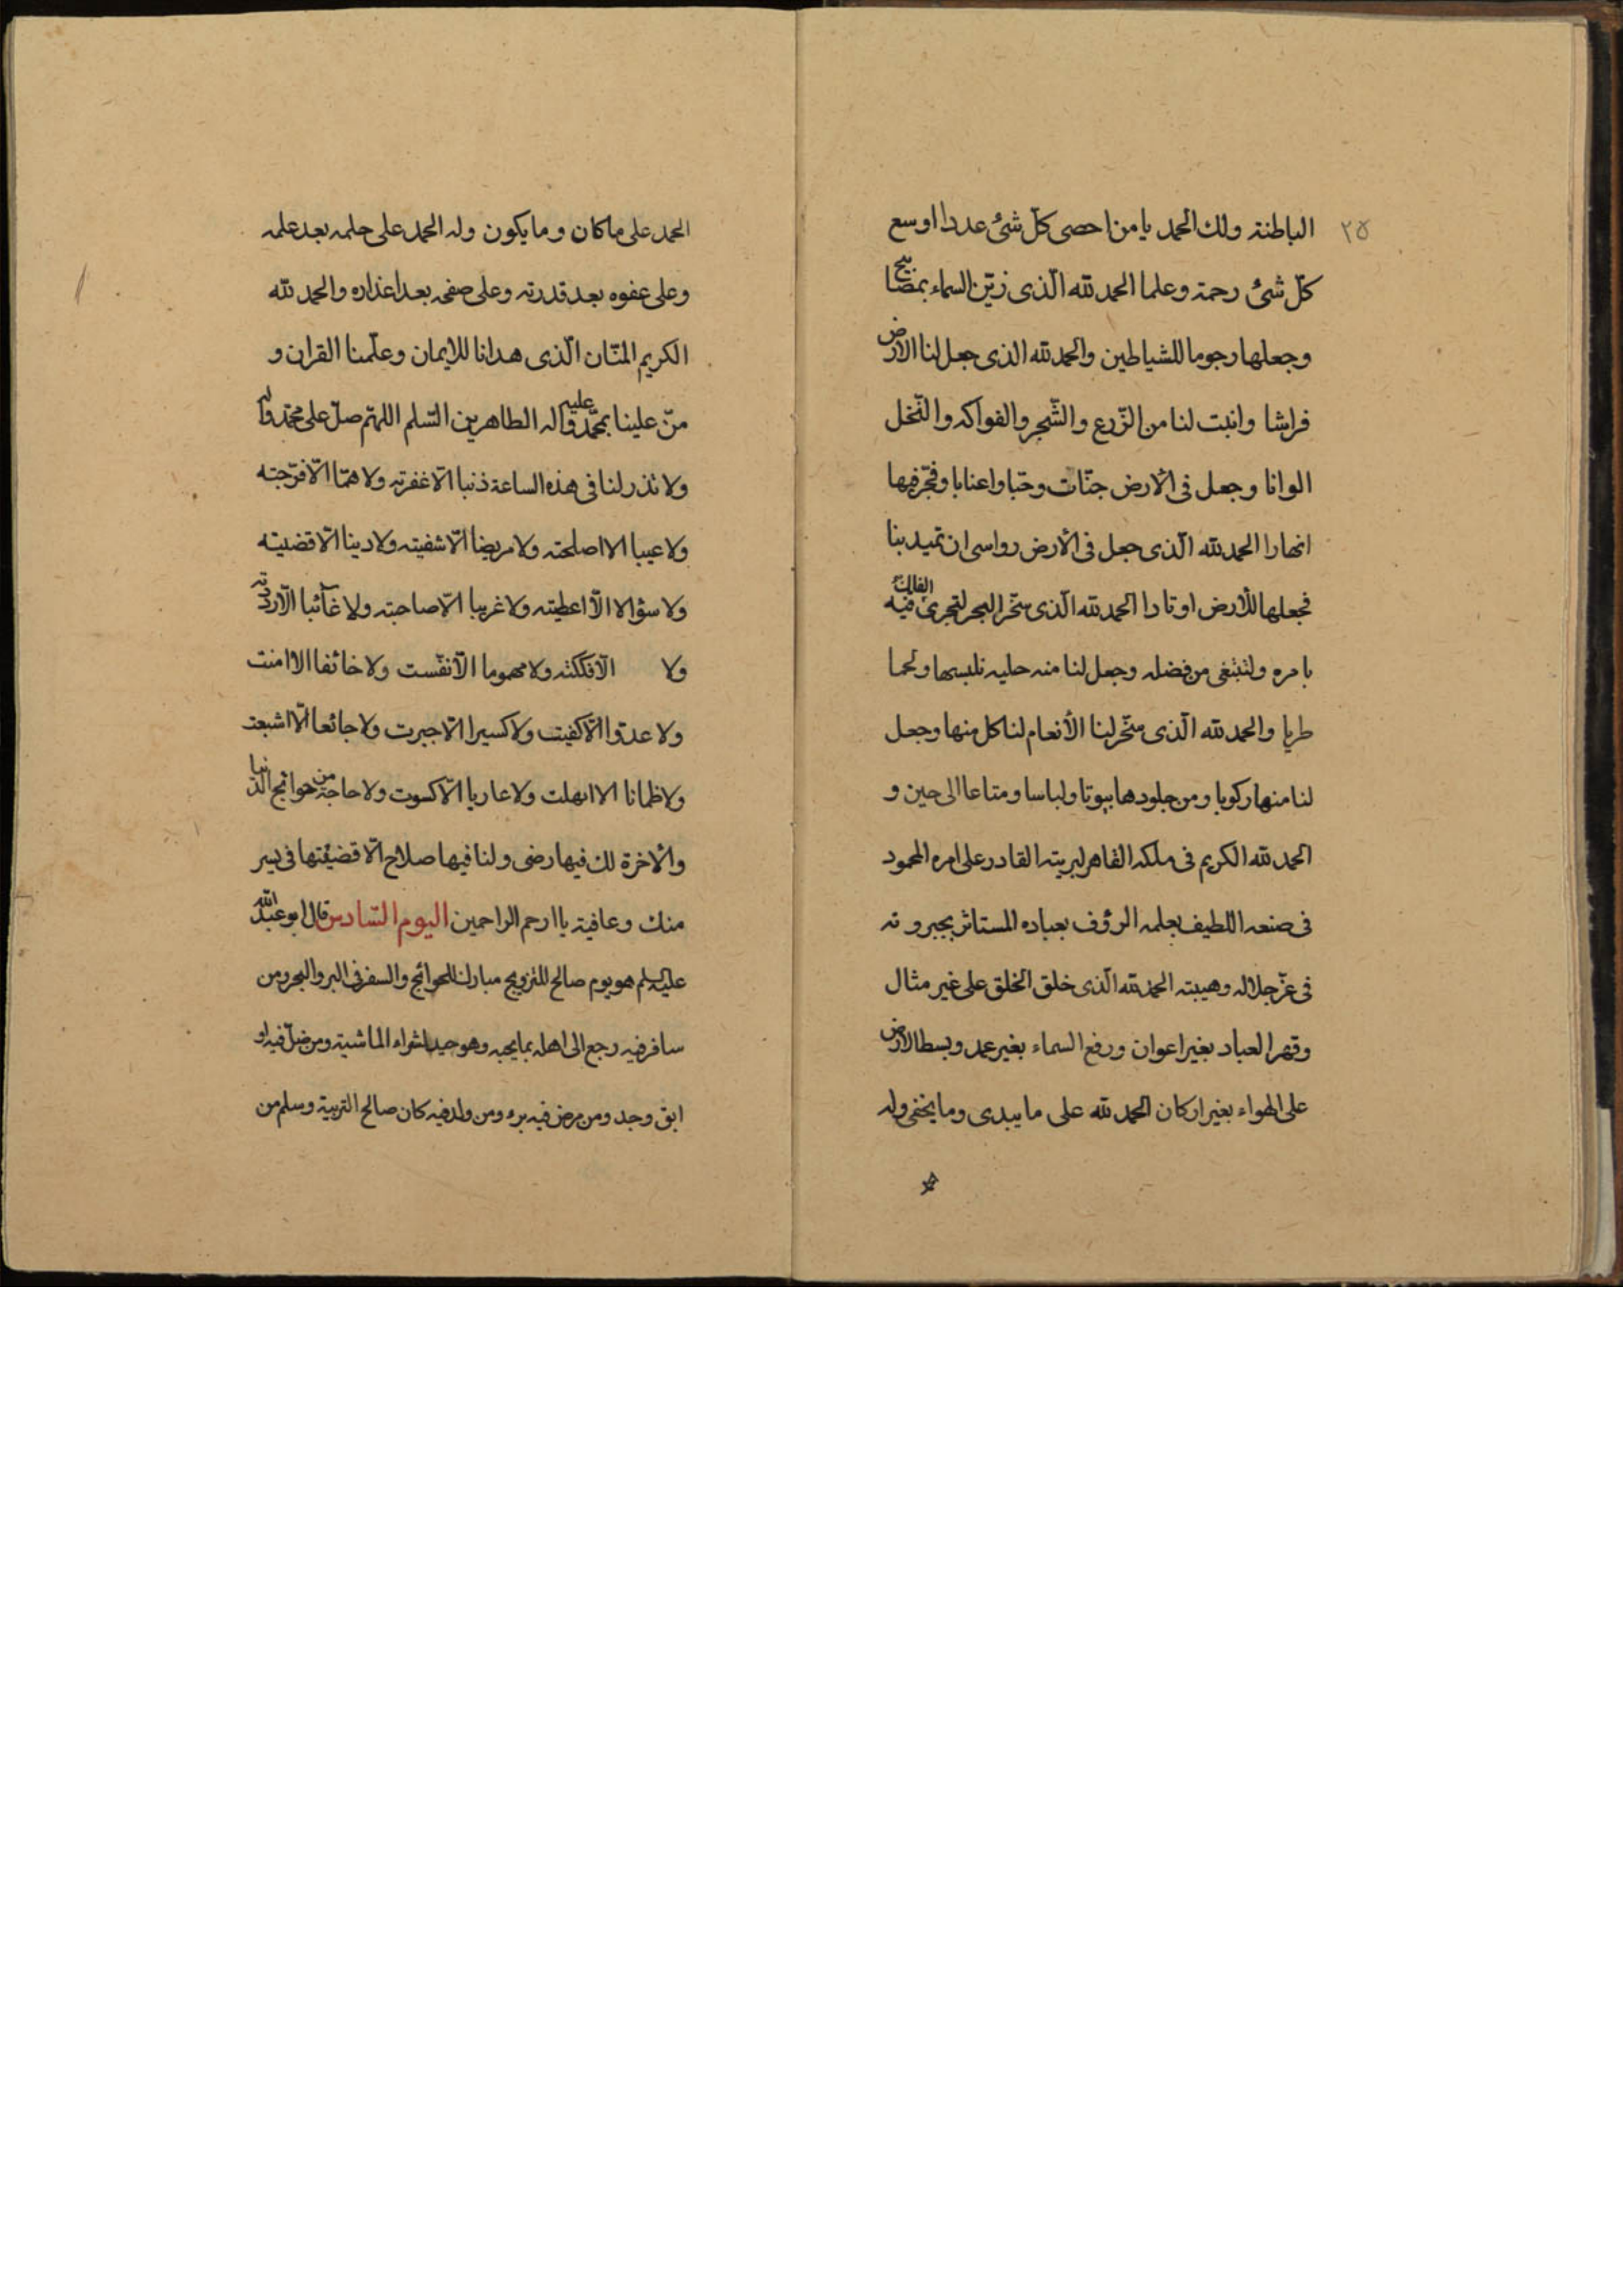 ٢٥
الباطنة ولك الحمد يا من احصى كلّ شئ عددا اوسع
كلّ شئ رحمة وعلما الحمد لله الّذى زيّن السماء بمصابيح
وجعلها رجوما للشياطين والحمد لله الذى جعل لنا الارض
فراشا وانبت لنا من الزّرع والشّجر والفواكه والنّخل
الوانا وجعل فى الارض جنّات وحبّا واعنابا وفجّر فيها
انهارا الحمد لله الّذى جعل فى الارض رواسى ان تميد بنا
فجعلها للارض اوتادا الحمد لله الّذى سخّر البحر لتجرى الفلك فيه
بامره ولنبتغى من فضله وجعل لنا منه حليه نلبسها ولحما
طريا والحمد لله الّذى سخّر لنا الأنعام لنا كل منها وجعل
لنا منها ركوبا ومن جلودها بيوتا ولباسا ومتاعا الى حين و
الحمد لله الكريم فى ملكه القاهر لبريته القادر على امره المحمود
فى صنعه اللطيف بعلمه الرؤف بعباده المستاثر بجبروته
فى عزّ جلاله وهيبته الحمد لله الّذى خلق الخلق على غير مثال
وقهر العباد بغير اعوان ورفع السماء بغير عمد وبسط الارض
على الهواء بغير اركان الحمد لله على ما يبدى وما يخفى وله
الحمد على ما كان وما يكون وله الحمد على حلمه بعد علمه
وعلى عفوه بعد قدرته وعلى صفحه بعد اعذاره والحمد لله
الكريم المنّان الّذى هدانا للايمان وعلّمنا القران و
منّ علينا بمحمّد واله الطاهرين عليه السّلم اللهمّ صلّ على محمّد واله
ولا تذر لنا فى هذه الساعة ذنبا الّا غفرته ولا همّا الّا فرّجته
ولا عيبا الا اصلحته ولا مريضا الّا شفيته ولا دينا الّا قضيته
ولا سؤالا الّا اعطيته ولا غريبا الّا صاحبته ولا غآئبا الّا رددته
ولا الّا فككته ولا مهموما الّا نفّست ولا خائفا الا امنت
ولا عدوّا الّا كفيت ولا كسيرا الّا جبرت ولا جائعا الّا اشبعت
ولا ظمانا الا انهلت ولا عاريا الّا كسوت ولا حاجة من حوائج الدنيا
والاخرة لك فيها رضى ولنا فيها صلاح الّا قضيتها فى يسر
منك وعافية يا ارحم الراحمين اليوم السّادس قال ابو عبد الله
عليه السلم هو يوم صالح للتزويج مبارك للحوائج والسفر فى البر والبحر ومن
سافر فيه رجع الى اهله بما يحبه وهو جيد لشراء الماشية ومن ضلّ فيه او
ابق وجد ومن مرض فيه برء ومن ولد فيه كان صالح التربية وسلم من